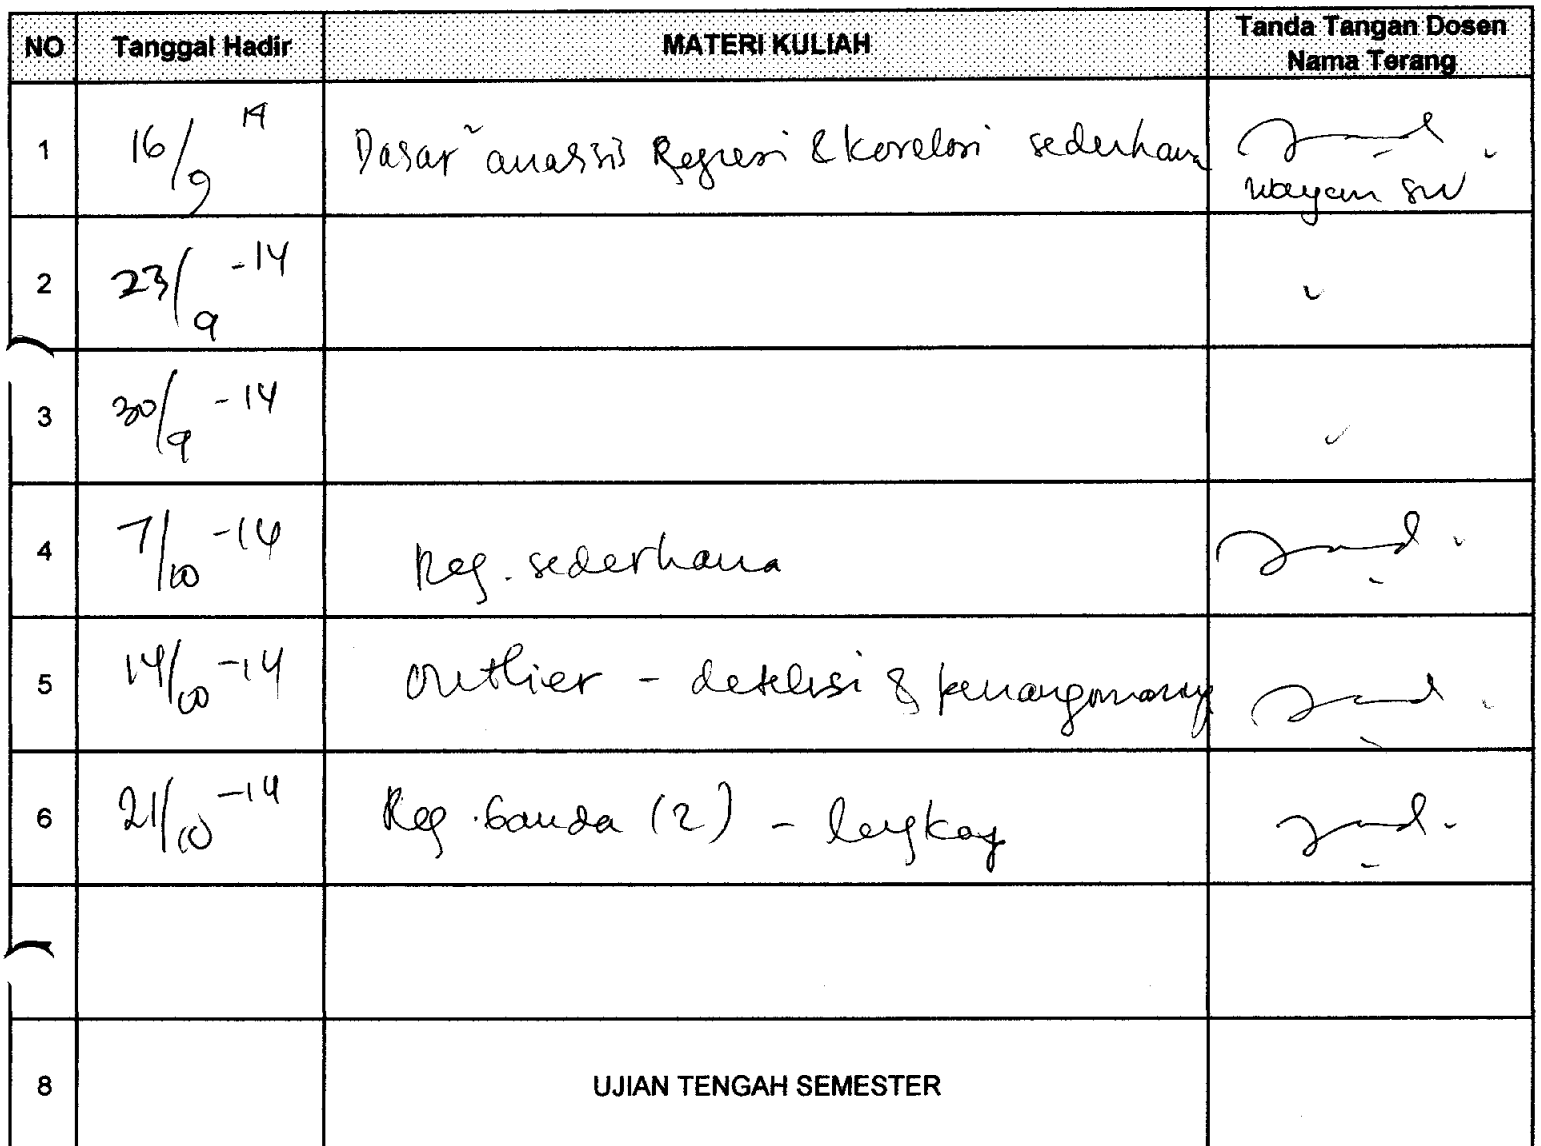 NO Tanggal Hadir MATERI KULIAH Tanda Tangan Dosen
Nama Terang
1 16/9 14 Dasar² analisis Regresi & korelasi sederhana
Wayan SW
2 23/9 -14
3 30/9 -14
4 7/10 -14 Reg. sederhana
5 14/10 -14 Outlier - deteksi & penanganannya
6 21/10 -14 Reg. Ganda (2) - lengkap
8 UJIAN TENGAH SEMESTER